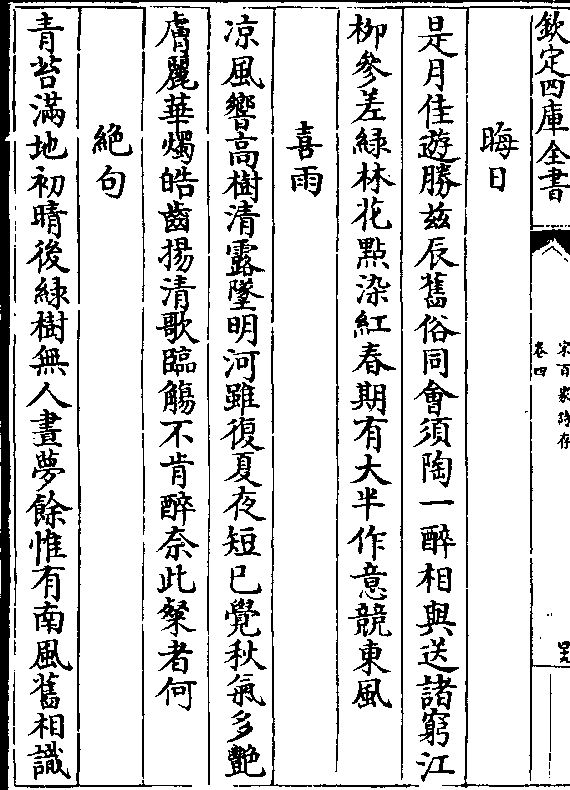 欽定四庫全書
宋百家詩存
卷四
晦日
是月佳遊勝兹辰舊俗同會須陶一醉相與送諸窮江
栁參差緑林花㸃染紅春期有大半作意競東風
喜雨
凉風響高樹清露墜明河雖復夏夜短已覺秋氣多艶
膚麗華燭皓齒揚清歌臨觴不肯醉奈此粲者何
絶句
青苔滿地初晴後緑樹無人晝夢餘惟有南風舊相識